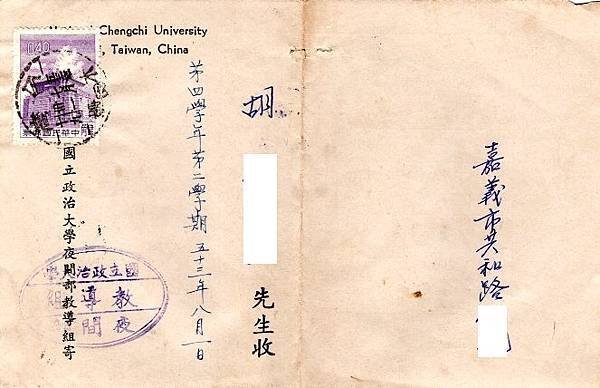 Chengchi University
Taiwan, China
0.40
中華民國郵票
嘉義市共和路
胡
先生收
第四學年第二學期 五十三年八月一日
國立政治大學夜間部教導組寄
國立政治
教導組
夜間